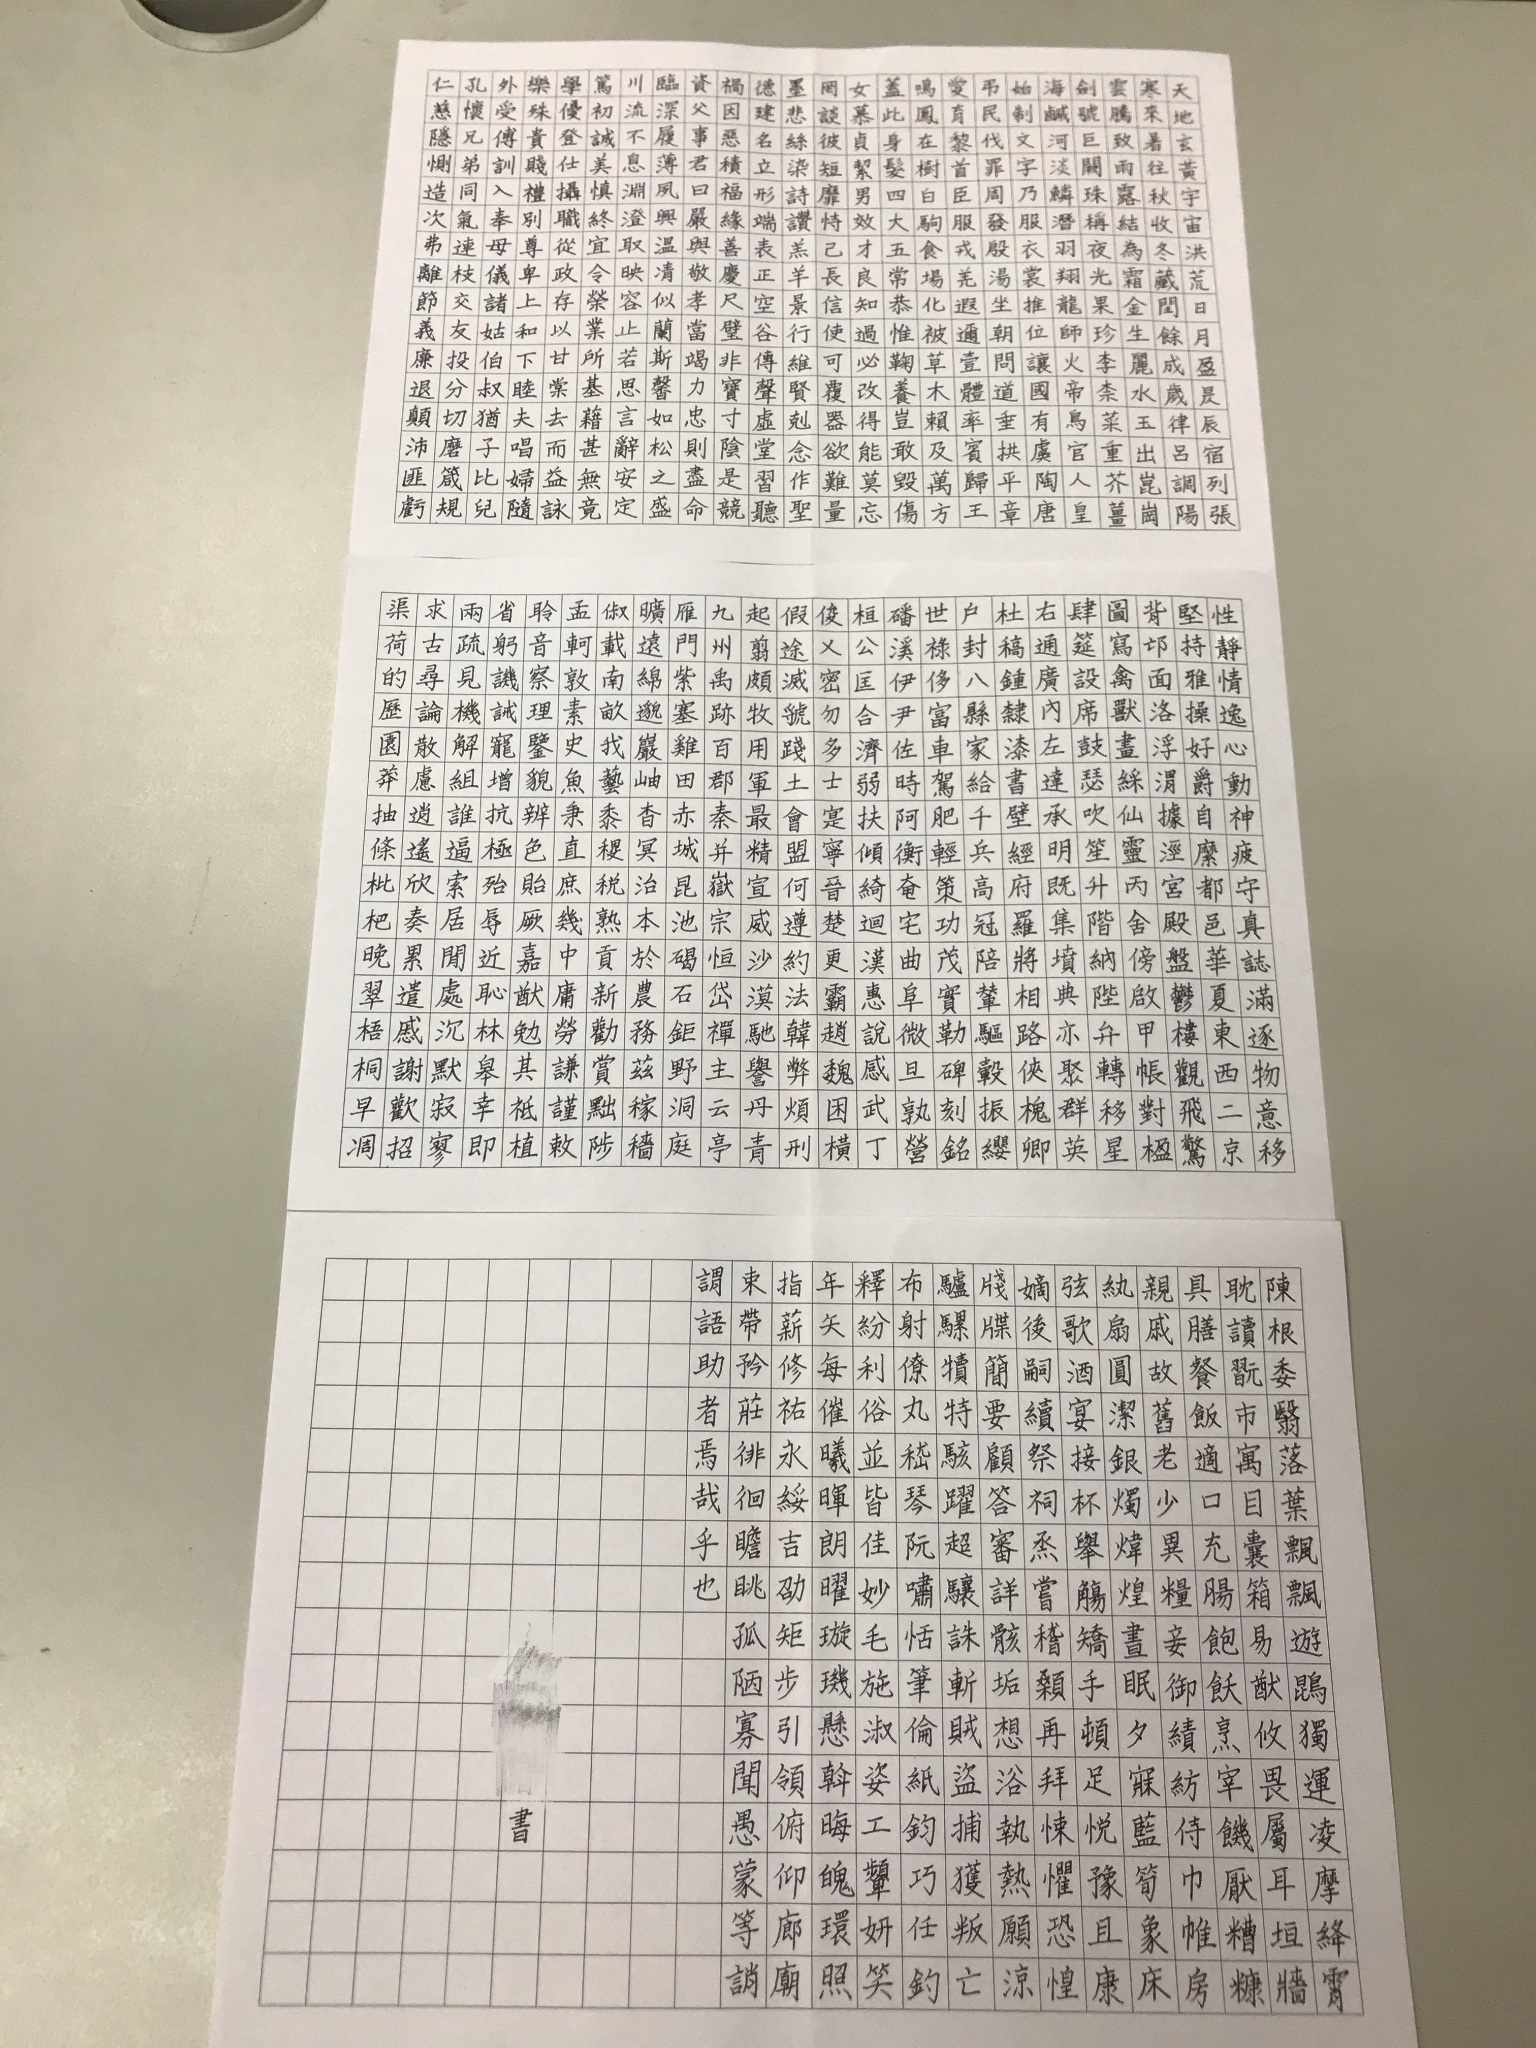 天地玄黃宇宙洪荒日月盈昃辰宿列張
寒來暑往秋收冬藏閏餘成歲律呂調陽
雲騰致雨露結為霜金生麗水玉出崑崗
劍號巨闕珠稱夜光果珍李柰菜重芥薑
海鹹河淡鱗潛羽翔龍師火帝鳥官人皇
始制文字乃服衣裳推位讓國有虞陶唐
弔民伐罪周發殷湯坐朝問道垂拱平章
愛育黎首臣服戎羌遐邇壹體率賓歸王
鳴鳳在樹白駒食場化被草木賴及萬方
蓋此身髮四大五常恭惟鞠養豈敢毀傷
女慕貞絜男效才良知過必改得能莫忘
罔談彼短靡恃己長信使可覆器欲難量
墨悲絲染詩讚羔羊景行維賢剋念作聖
德建名立形端表正空谷傳聲虛堂習聽
禍因惡積福緣善慶尺璧非寶寸陰是競
資父事君曰嚴與敬孝當竭力忠則盡命
臨深履薄夙興溫凊似蘭斯馨如松之盛
川流不息淵澄取映容止若思言辭安定
篤初誠美慎終宜令榮業所基藉甚無竟
學優登仕攝職從政存以甘棠去而益詠
樂殊貴賤禮別尊卑上和下睦夫唱婦隨
外受傅訓入奉母儀諸姑伯叔猶子比兒
孔懷兄弟同氣連枝交友投分切磨箴規
仁慈隱惻造次弗離節義廉退顛沛匪虧
性靜情逸心動神疲守真誌滿逐物意移
堅持雅操好爵自縻都邑華夏東西二京
背邙面洛浮渭據涇宮殿盤鬱樓觀飛驚
圖寫禽獸畫綵仙靈丙舍傍啟甲帳對楹
肆筵設席鼓瑟吹笙升階納陛弁轉移星
右通廣內左達承明既集墳典亦聚群英
杜稿鍾隸漆書壁經府羅將相路俠槐卿
户封八縣家給千兵高冠陪輦驅轂振纓
世祿侈富車駕肥輕策功茂實勒碑刻銘
磻溪伊尹佐時阿衡奄宅曲阜微旦孰營
桓公匡合濟弱扶傾綺迴漢惠說感武丁
俊乂密勿多士寔寧晉楚更霸趙魏困橫
假途滅虢踐土會盟何遵約法韓弊煩刑
起翦頗牧用軍最精宣威沙漠馳譽丹青
九州禹跡百郡秦并嶽宗恒岱禪主云亭
雁門紫塞雞田赤城昆池碣石鉅野洞庭
曠遠綿邈巖岫杳冥治本於農務茲稼穡
俶載南畝我藝黍稷稅熟貢新勸賞黜陟
孟軻敦素史魚秉直庶幾中庸勞謙謹敕
聆音察理鑒貌辨色貽厥嘉猷勉其祗植
省躬譏誡寵增抗極殆辱近恥林皋幸即
兩疏見機解組誰逼索居閒處沉默寂寥
求古尋論散慮逍遙欣奏累遣慼謝歡招
渠荷的歷園莽抽條枇杷晚翠梧桐早凋
陳根委翳落葉飄颻遊鵾獨運凌摩絳霄
耽讀翫市寓目囊箱易猷攸畏屬耳垣牆
具膳餐飯適口充腸飽飫烹宰饑厭糟糠
親戚故舊老少異糧妾御績紡侍巾帷房
紈扇圓潔銀燭煒煌晝眠夕寐藍筍象床
弦歌酒宴接杯舉觴矯手頓足悅豫且康
嫡後嗣續祭祠烝嘗稽顙再拜悚懼恐惶
牋牒簡要顧答審詳骸垢想浴執熱願涼
驢騾犢特駭躍超驤誅斬賊盜捕獲叛亡
布射僚丸嵇琴阮嘯恬筆倫紙鈞巧任釣
釋紛利俗並皆佳妙毛施淑姿工顰妍笑
年矢每催曦暉朗曜璇璣懸斡晦魄環照
指薪修祜永綏吉劭矩步引領俯仰廊廟
束帶矜莊徘徊瞻眺孤陋寡聞愚蒙等誚
謂語助者焉哉乎也
書